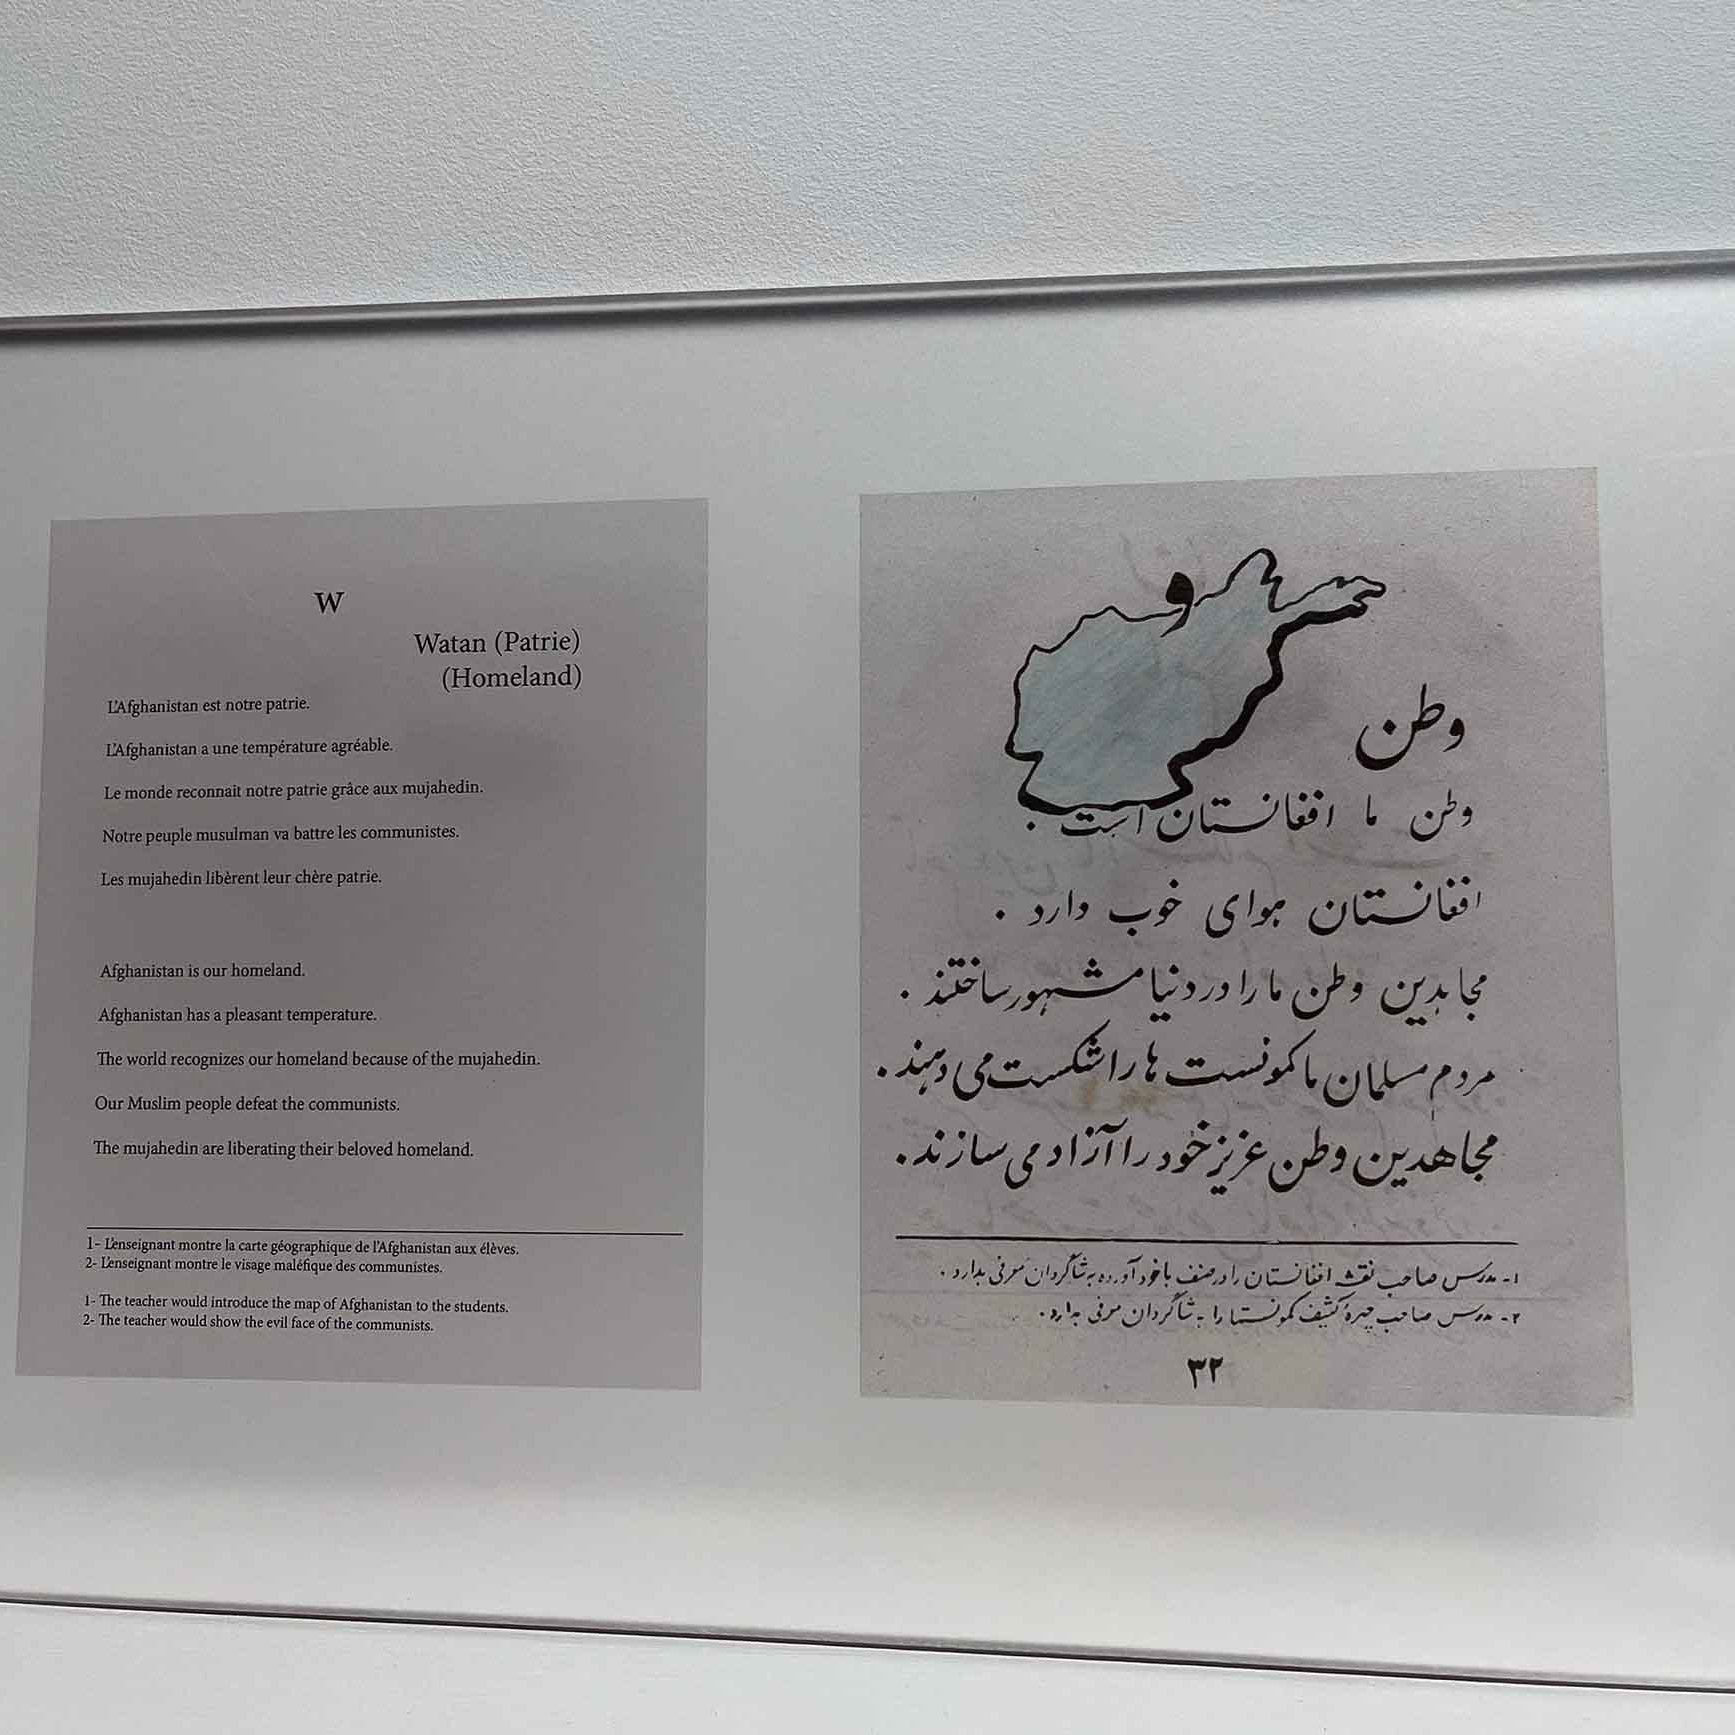 W
Watan (Patrie)
(Homeland)
L'Afghanistan est notre patrie.
L'Afghanistan a une température agréable.
Le monde reconnait notre patrie grâce aux mujahedin.
Notre peuple musulman va battre les communistes.
Les mujahedin libèrent leur chère patrie.
Afghanistan is our homeland.
Afghanistan has a pleasant temperature.
The world recognizes our homeland because of the mujahedin.
Our Muslim people defeat the communists.
The mujahedin are liberating their beloved homeland.
1- L'enseignant montre la carte géographique de l'Afghanistan aux élèves.
2- L'enseignant montre le visage maléfique des communistes.
1- The teacher would introduce the map of Afghanistan to the students.
2- The teacher would show the evil face of the communists.
و
وطن
وطن ما افغانستان است .
افغانستان هوای خوب دارد .
مجاهدین وطن ما را در دنیا مشهور ساختند .
مردم مسلمان ما کمونست ها را شکست می دهند .
مجاهدین وطن عزیز خود را آزاد می سازند .
۱- مدرس صاحب نقشه افغانستان را در صنف با خود آورده به شاگردان معرفی بدارد .
۲- مدرس صاحب چهرهٔ کثیف کمونستها را به شاگردان معرفی بدارد .
۳۲